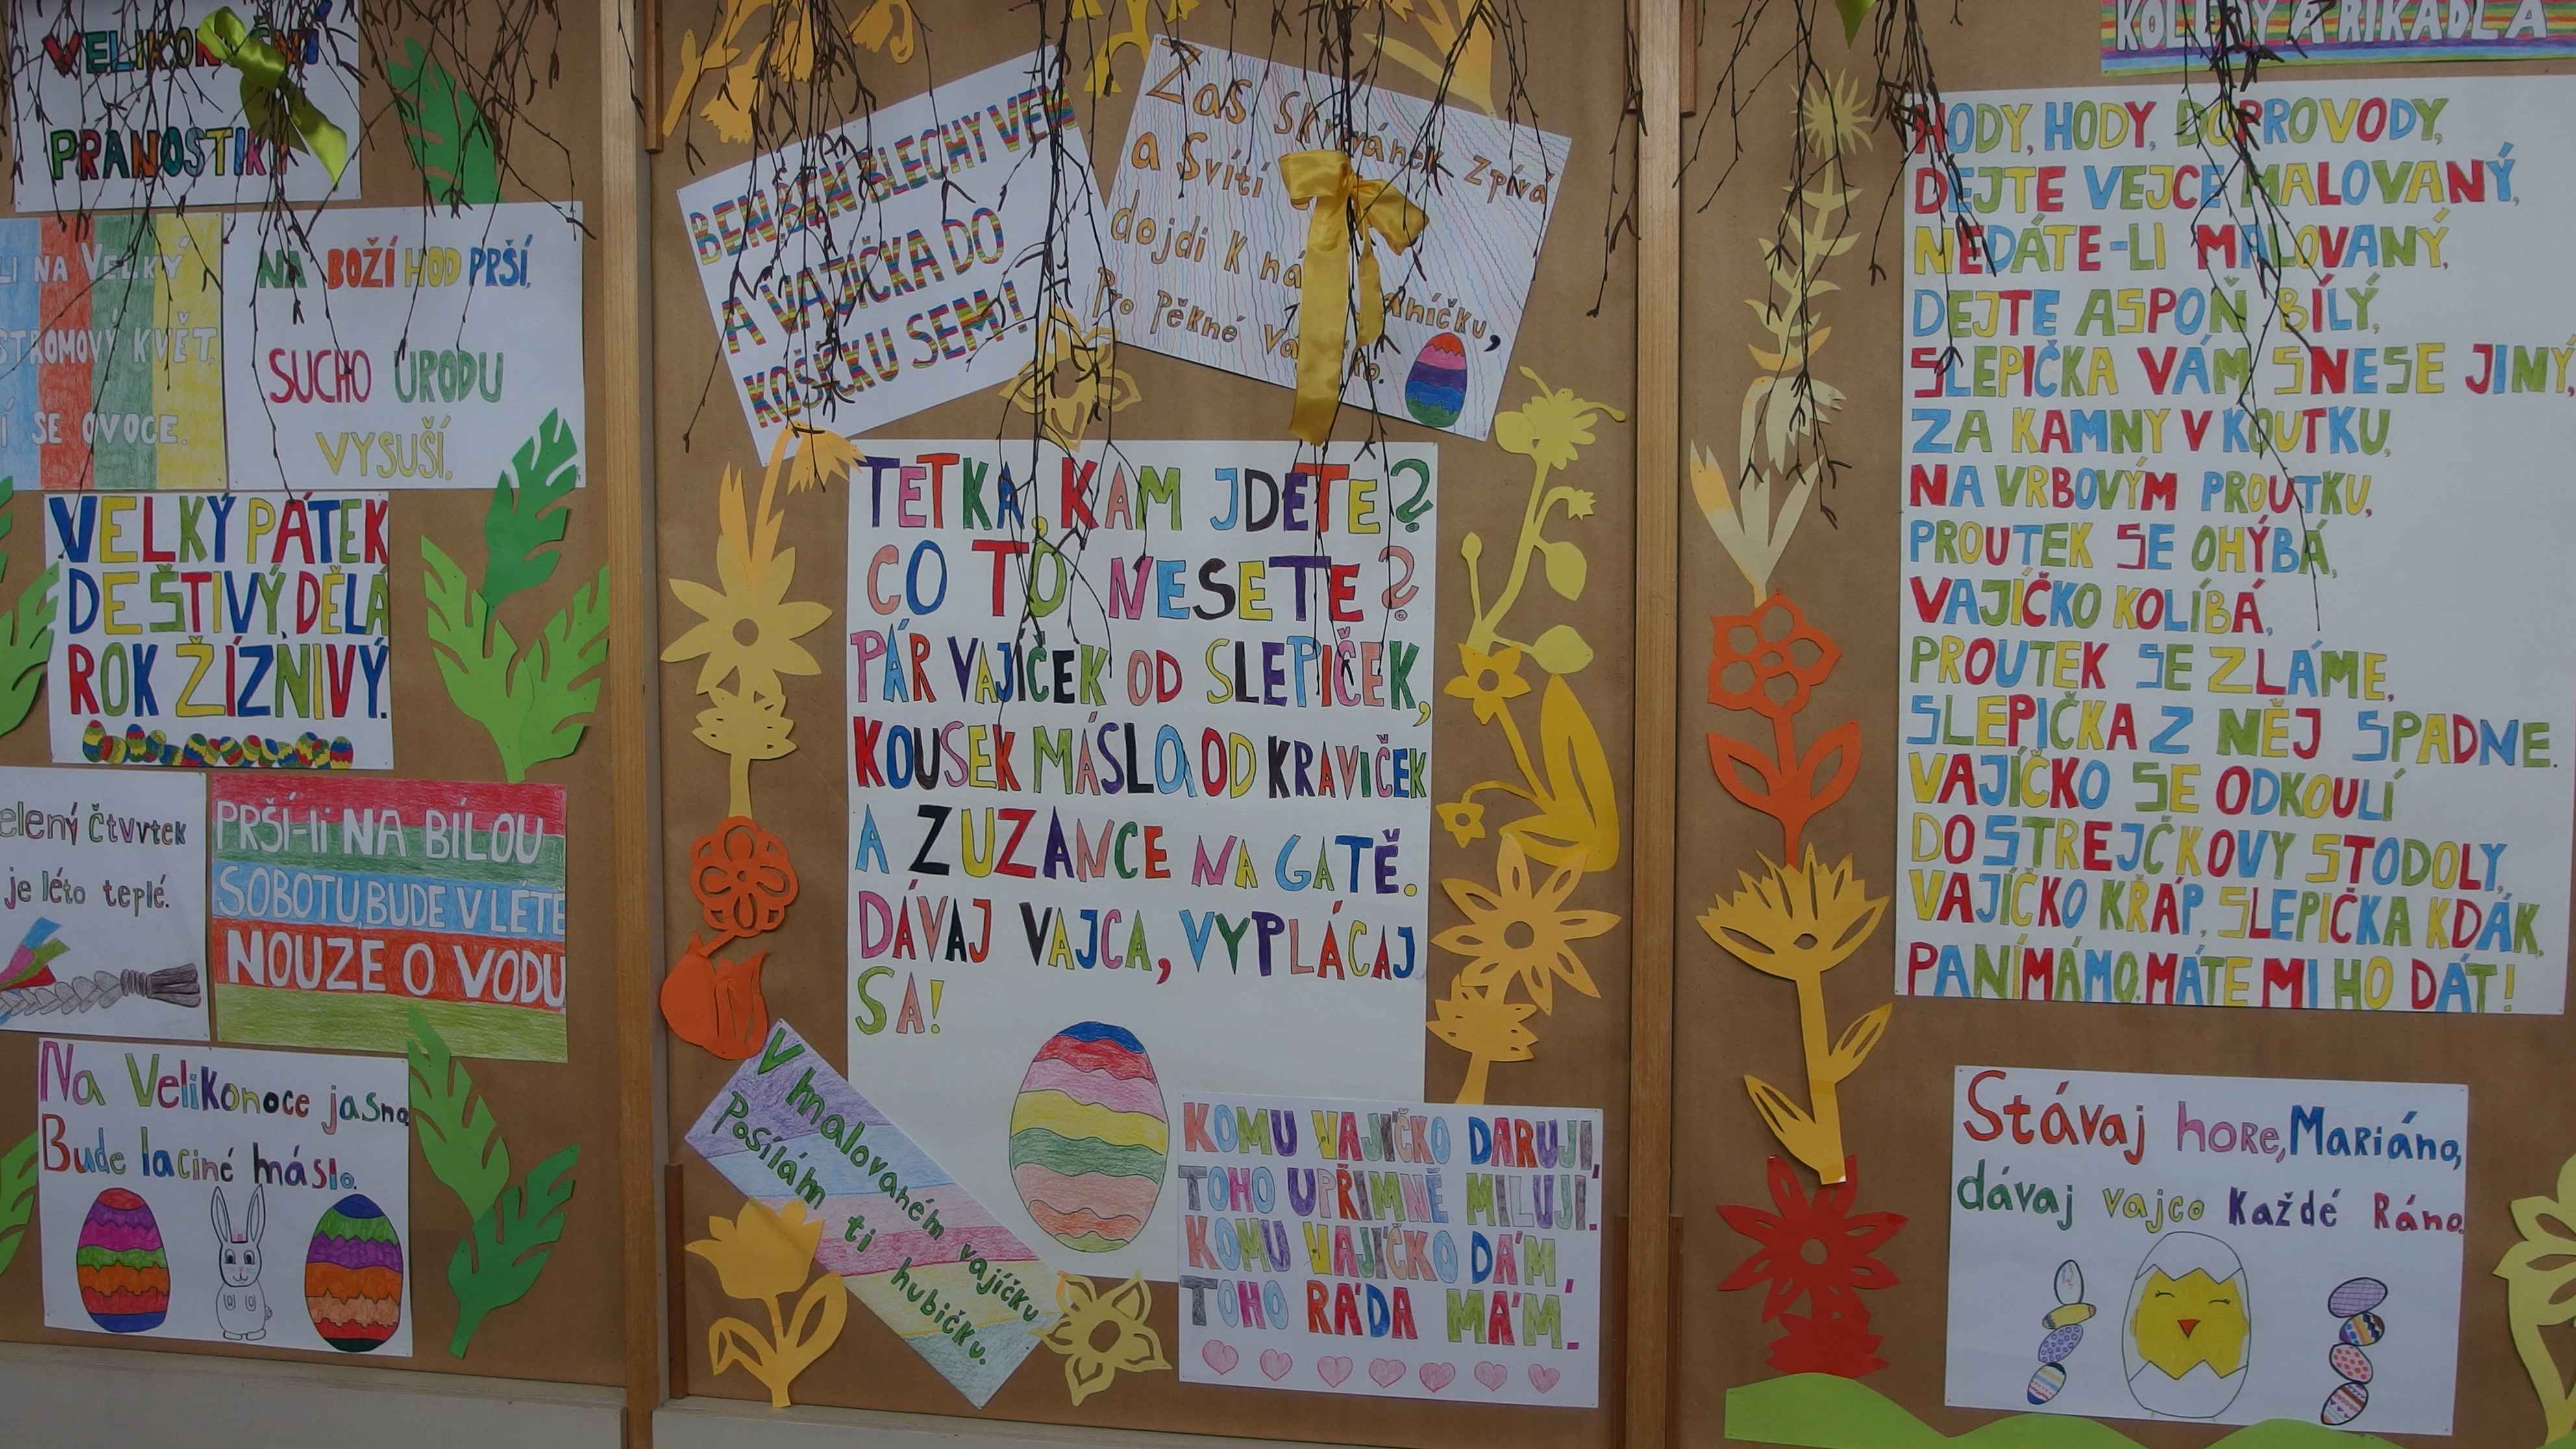 VELIKONOČNÍ
PRANOSTIKY
LI NA VELKÝ
STROMOVÝ KVĚT,
Í SE OVOCE.
NA BOŽÍ HOD PRŠÍ,
SUCHO ÚRODU
VYSUŠÍ.
VELKÝ PÁTEK
DEŠTIVÝ, DĚLÁ
ROK ŽÍZNIVÝ.
elený Čtvrtek
je léto teplé.
PRŠÍ-li NA BÍLOU
SOBOTU, BUDE V LÉTĚ
NOUZE O VODU
Na Velikonoce jasno
Bude laciné máslo.
BEN, BEŇ BLECHY VEN
A VAJÍČKA DO
KOŠÍČKU SEM!
Zas Skřivánek zpívá
a Svítí
dojdi k ná Aničku,
Pro Pěkné
TETKA, KAM JDETE?
CO TO NESETE?
PÁR VAJÍČEK OD SLEPIČEK,
KOUSEK MÁSLA OD KRAVIČEK
A ZUZANCE NA GATĚ.
DÁVAJ VAJCA, VYPLÁCAJ
SA!
V malovaném vajíčku
Posílám ti hubičku.
KOMU VAJÍČKO DARUJI,
TOHO UPŘIMNĚ MILUJI.
KOMU VAJÍČKO DÁM,
TOHO RÁDA MÁM.
KOLEDY A ŘÍKADLA
HODY, HODY, DOPROVODY,
DEJTE VEJCE MALOVANÝ,
NEDÁTE-LI MALOVANÝ,
DEJTE ASPOŇ BÍLÝ,
SLEPIČKA VÁM SNESE JINÝ,
ZA KAMNY V KOUTKU,
NA VRBOVÝM PROUTKU,
PROUTEK SE OHÝBÁ,
VAJÍČKO KOLÍBÁ,
PROUTEK SE ZLÁME,
SLEPIČKA Z NĚJ SPADNE.
VAJÍČKO SE ODKOULÍ
DO STREJČKOVY STODOLY,
VAJÍČKO KŘÁP, SLEPIČKA KDÁK,
PANÍMÁMO, MÁTE MI HO DÁT!
Stávaj hore, Mariáno,
dávaj vajco Každé Ráno.